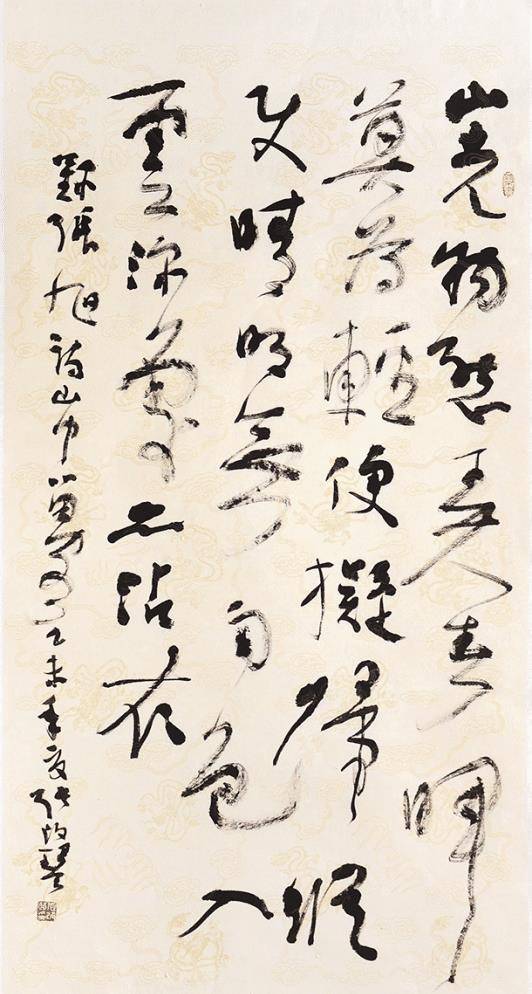 山光物態弄春暉
莫為輕便擬歸縱
使晴明無雨色入
雲深處亦沾衣
張旭詩山中留乙未年夏張